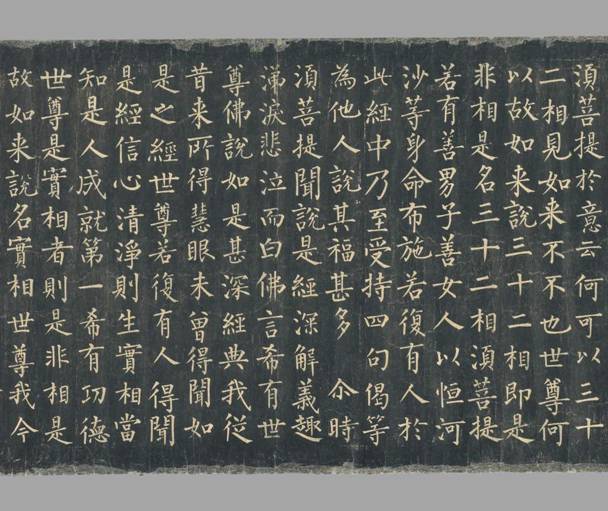 湏菩提於意云何可以三十
二相見如来不不也世尊何
以故如来說三十二相即是
非相是名三十二相湏菩提
若有善男子善女人以恒河
沙等身命布施若復有人於
此經中乃至受持四句偈等
為他人說其福甚多 尒時
湏菩提聞說是經深解義趣
涕淚悲泣而白佛言希有世
尊佛說如是甚深經典我從
昔来所得慧眼未曾得聞如
是之經世尊若復有人得聞
是經信心清淨則生實相當
知是人成就第一希有功德
世尊是實相者則是非相是
故如来說名實相世尊我今